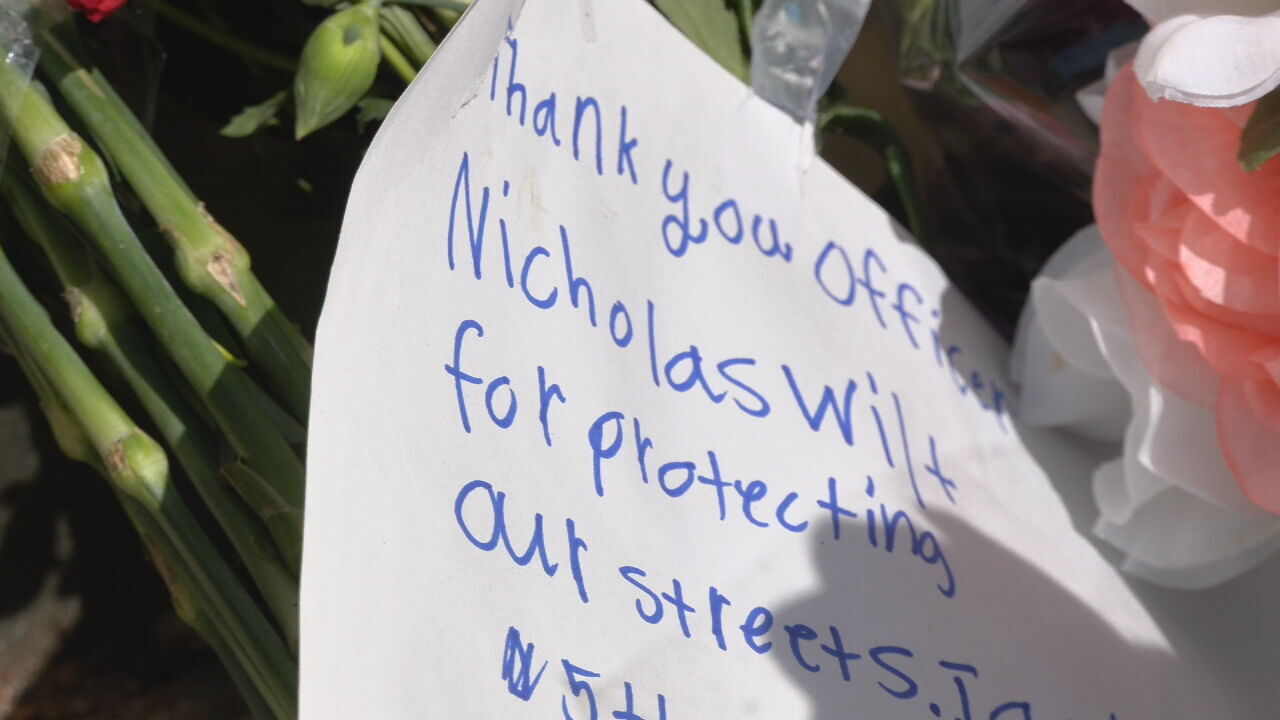 Thank you Officer
Nicholas Wilt
for protecting
our streets.
5th